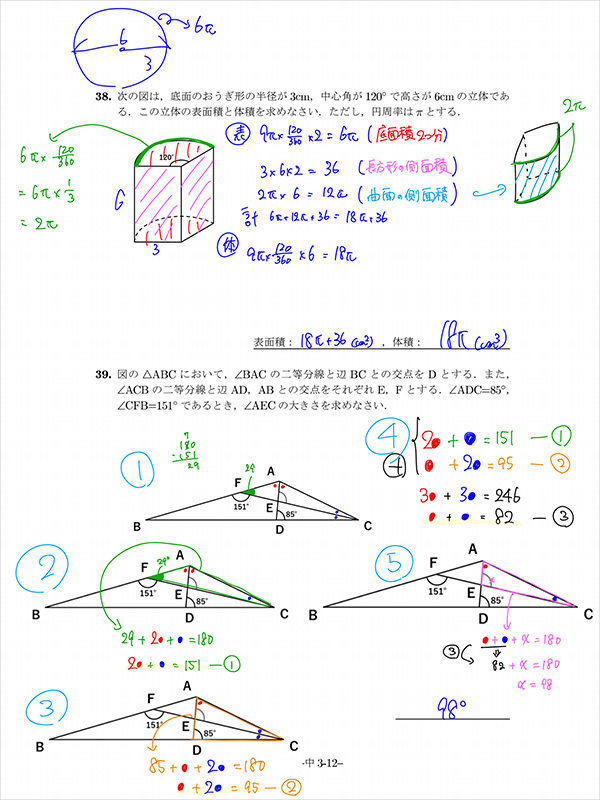 6π
6
3
38. 次の図は，底面のおうぎ形の半径が 3cm，中心角が 120° で高さが 6cm の立体であ
る．この立体の表面積と体積を求めなさい．ただし，円周率は π とする．
6π×120/360
=6π×1/3
=2π
120°
6
3
表 9π×120/360×2=6π (底面積2つ分)
3×6×2=36 (長方形の側面積)
2π×6=12π (曲面の側面積)
計 6π+12π+36=18π+36
体
9π×120/360×6=18π
2π
表面積： 18π+36 (cm²) ，体積： 18π (cm³)
39. 図の △ABC において，∠BAC の二等分線と辺 BC との交点を D とする．また，
∠ACB の二等分線と辺 AD，AB との交点をそれぞれ E，F とする．∠ADC=85°，
∠CFB=151° であるとき，∠AEC の大きさを求めなさい．
①
7
180
-151
29
29
A
F
E
151°
85°
B
D
C
④
④
2●+●=151 —①
●+2●=95 —②
3●+3●=246
●+●=82 —③
②
A
29°
F
151°
E
85°
B
D
C
29+2●+●=180
2●+●=151 —①
⑤
A
F
x
151°
E
85°
B
D
C
③
●+●+x=180
82+x=180
x=98
98°
③
A
F
151°
E
85°
B
D
C
85+●+2●=180
●+2●=95 —②
-中 3-12-